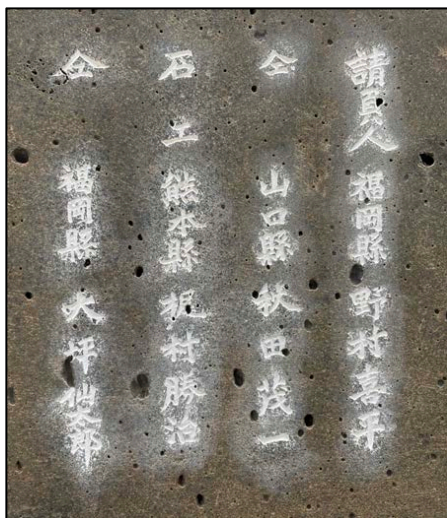 請負人 福岡縣 野村喜平
仝 山口縣 秋田茂一
石工 熊本縣 梶村勝治
仝 福岡縣 大坪仙太郎